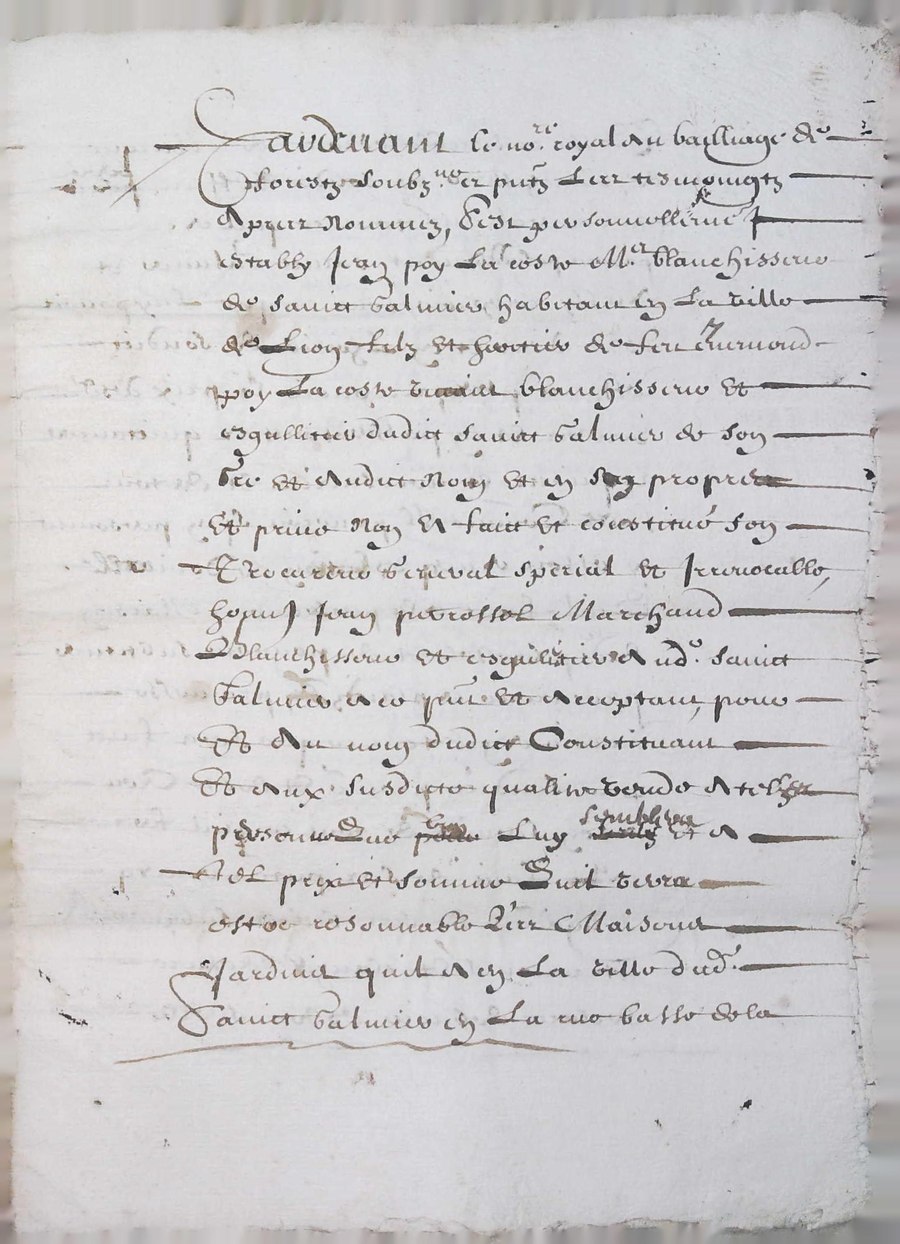 Pardevant le no.re royal au bailliage de
forestz soubz.né et pntz Les tesmoingtz
Apres nommez, s'est personnellemt
estably Jean poy La coste M.e blanchisseur
de sainct Galmier habitant en La ville
de Lion filz et heritier de feu
poy La coste vivant blanchisseur et
esgullitier dudict sainct Galmier de son
Gre et Audict Nom et en son propre
et prive Non A faict et constitué son
Procureur General special et Irrevocable,
Jean Marchand
Blanchisseur et esgulitier Aud. sainct
Galmier A ce pnt et Acceptant, pour
Et Au nom dudict Constituant
Et Aux susdictes qualites vendre A telle
personne Que Luy semblera et A
Tel prix et somme Quil verra
estre resonnable Les Maisons
Jardins quil A en La ville dud.
Sainct Galmier en La rue basse de la